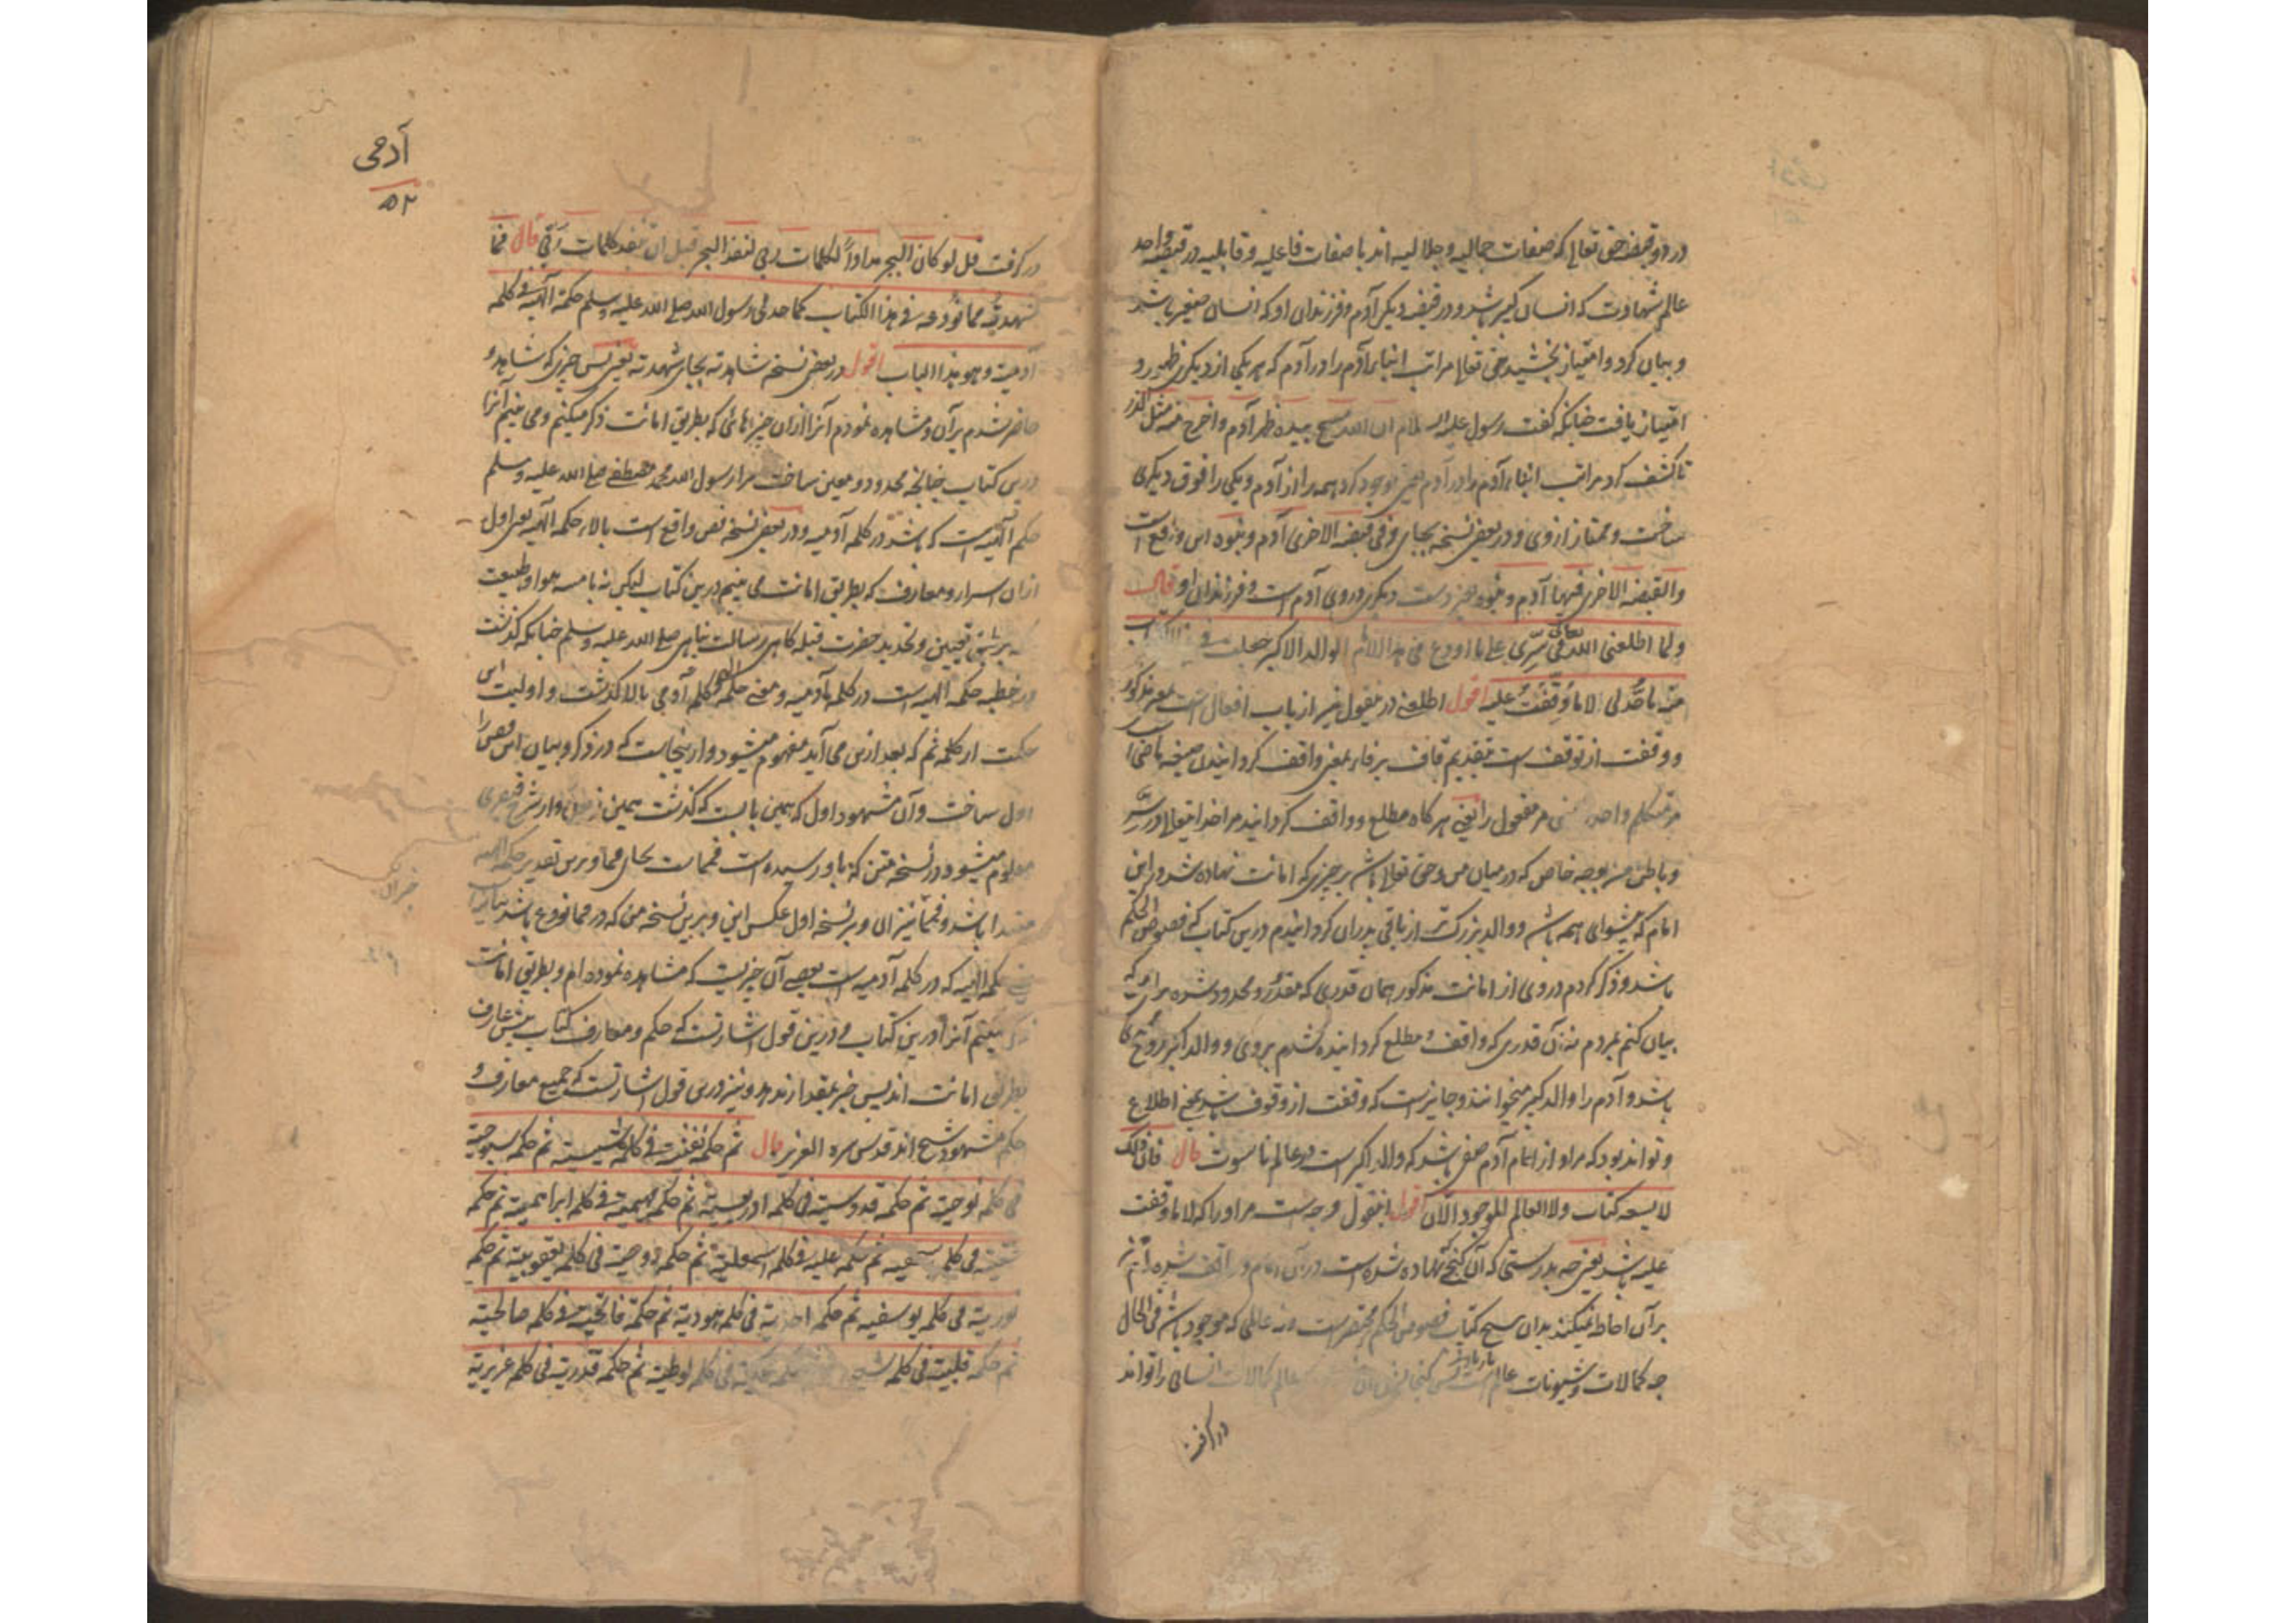 در دو قبضه حق تعالی که صفات جمالیه و جلالیه اند با صفات فاعلیه و قابلیه در قبضه واحد
عالم شهادت که انسان کبیر باشد و در قبضه دیگر آدم و فرزندان او که انسان صغیر باشد
و بیان کرد و امتیاز بخشید حق تعالی مراتب ابناء آدم را در آدم که هر یکی از دیگری ظهور و
امتیاز یافت چنانکه گفت رسول علیه السلام ان الله مسح بیده ظهر آدم و اخرج منه مثل الذر
تا کشف کرد مراتب ابناء آدم را در آدم یعنی موجود کرد همه را از آدم و یکی را فوق دیگری
ساخت و ممتاز از وی و در بعضی نسخه بجای و فی قبضه الاخری آدم و بنوه این واقع است
والقبضه الاخری فیها آدم و بنوه یعنی دست دیگر در وی آدم است و فرزندان او قال
ولما اطلعنی الله تعالی فی سری علی ما اودع فی هذا الامام الوالد الاکبر جعلت فی هذا الکتاب
منه ما حد لی لا ما وقفت علیه اقول اطلعنی در مقول نیز از باب افعال است بمعنی مذکور
و وقفت از توقف است بتقدیم قاف بر فاء بمعنی واقف گردانیدن صیغه ماضی است
مر متکلم واحد مر مفعول را یعنی هر گاه مطلع و واقف گردانید مرا خدا تعالی در سر
و باطن من بوجه خاص که در میان من و حق تعالی باشد بر چیزی که امانت نهاده شد در این
امام که پیشوای همه باشد و والد بزرگ تر از باقی پدران گردانیدم درین کتاب که فصوص الحکم
باشد و ذکر کردم در وی از امانت مذکور همان قدری که مقدر و محدود شده برای که
بیان کنم بمردم نه آن قدری که واقف و مطلع گردانیده شدم بر وی و والد اکبر روح
باشد و آدم را والد کبیر میخوانند و جایز است که وقفت از وقوف باشد بمعنی اطلاع
و تواند بود که مراد از امام آدم صفی باشد که والد اکبر است در عالم ناسوت قال فان ذلک
لا یسعه کتاب ولا العالم الموجود الآن اقول اینقول وجه است مر او را که لا ما وقفت
علیه باشد یعنی چه بدرستی که آن گنجی نهاده شده است در آن امام و واقف شده ام
بر آن احاطه نمیکند بدان هیچ کتاب فصوص الحکم مختصر است و نه عالمی که موجود باشد فی الحال
چه کمالات و شیونات عالم عالم کمالات انسانی را تواند
در گرفت
آدمی
۵۲
در گرفت قل لو کان البحر مدادا لکلمات ربی لنفد البحر قبل ان تنفد کلمات ربی قال فما
شهدته مما نودعه فی هذا الکتاب کما حد لی رسول الله صلی الله علیه وسلم حکمة الهیة فی کلمة
آدمیة وهو هذا الباب اقول در بعضی نسخه شاهدته بجای شهدته یعنی پس چیزی که شاهد و
حاضر شدم بر آن و مشاهده نمودم آنرا از آن چیزهائی که بطریق امانت ذکر میکنم و می نهیم آنرا
درین کتاب چنانچه محدود و معین ساخت مرا رسول الله محمد مصطفی صلی الله علیه وسلم
حکم الهیه است که باشد در کلمه آدمیه و در بعضی نسخه نص واقع است بالاء حکمه الهیه یعنی اول
ازان اسرار و معارف که بطریق امانت می نهیم درین کتاب لیکن نه بامر هوا و طبیعت
تعیین و تحدید حضرت قبله گاهی رسالت پناهی صلی الله علیه وسلم چنانکه گذشت
در خطبه حکمه الهیه است در کلمه آدمیه و معنی حکمه الهی کلمه آدمی بالا گذشت و اولیت این
حکمت از کلمه ثم که بعد ازین می آید مفهوم میشود و از اینجاست که در ذکر و بیان این فص را
اول ساخت و آن مشهود اول که همین بابست که گذشت همین و از شرح
معلوم میشود در نسخه متن که باو رسیده است فمما بجای فما و برین تقدیر حکمه الهیه
مبتدا باشد و فمما نیز ان و بر نسخه اول عکس این و برین نسخه من که در مما نودع باشد
حکمه الهیه که در کلمه آدمیه است بعضی آن چیزیست که مشاهده نموده ام و بطریق امانت
می نهیم آنرا درین کتاب و درین قول اشارتست که حکم و معارف کتاب پیش عارف
بطریق امانت اند پس خبر بمقدار ندهد و نیز درین قول اشارتست که جمیع معارف و
حکم مشهود شیخ اند قدس سره العزیز قال ثم حکمة نفثیة فی کلمة شیثیة ثم حکمة سبوحیة
فی کلمة نوحیة ثم حکمة قدوسیة فی کلمة ادریسیة ثم حکمة مهیمیة فی کلمة ابراهیمیة ثم حکمة
حقیة فی کلمة اسحقیة ثم حکمة علیة فی کلمة اسمعیلیة ثم حکمة روحیة فی کلمة یعقوبیة ثم حکمة
نوریة فی کلمة یوسفیة ثم حکمة احدیة فی کلمة هودیة ثم حکمة فاتحیة فی کلمة صالحیة
ثم حکمة قلبیة فی کلمة شعیبیة ثم حکمة ملکیة فی کلمة لوطیة ثم حکمة قدریة فی کلمة عزیریة